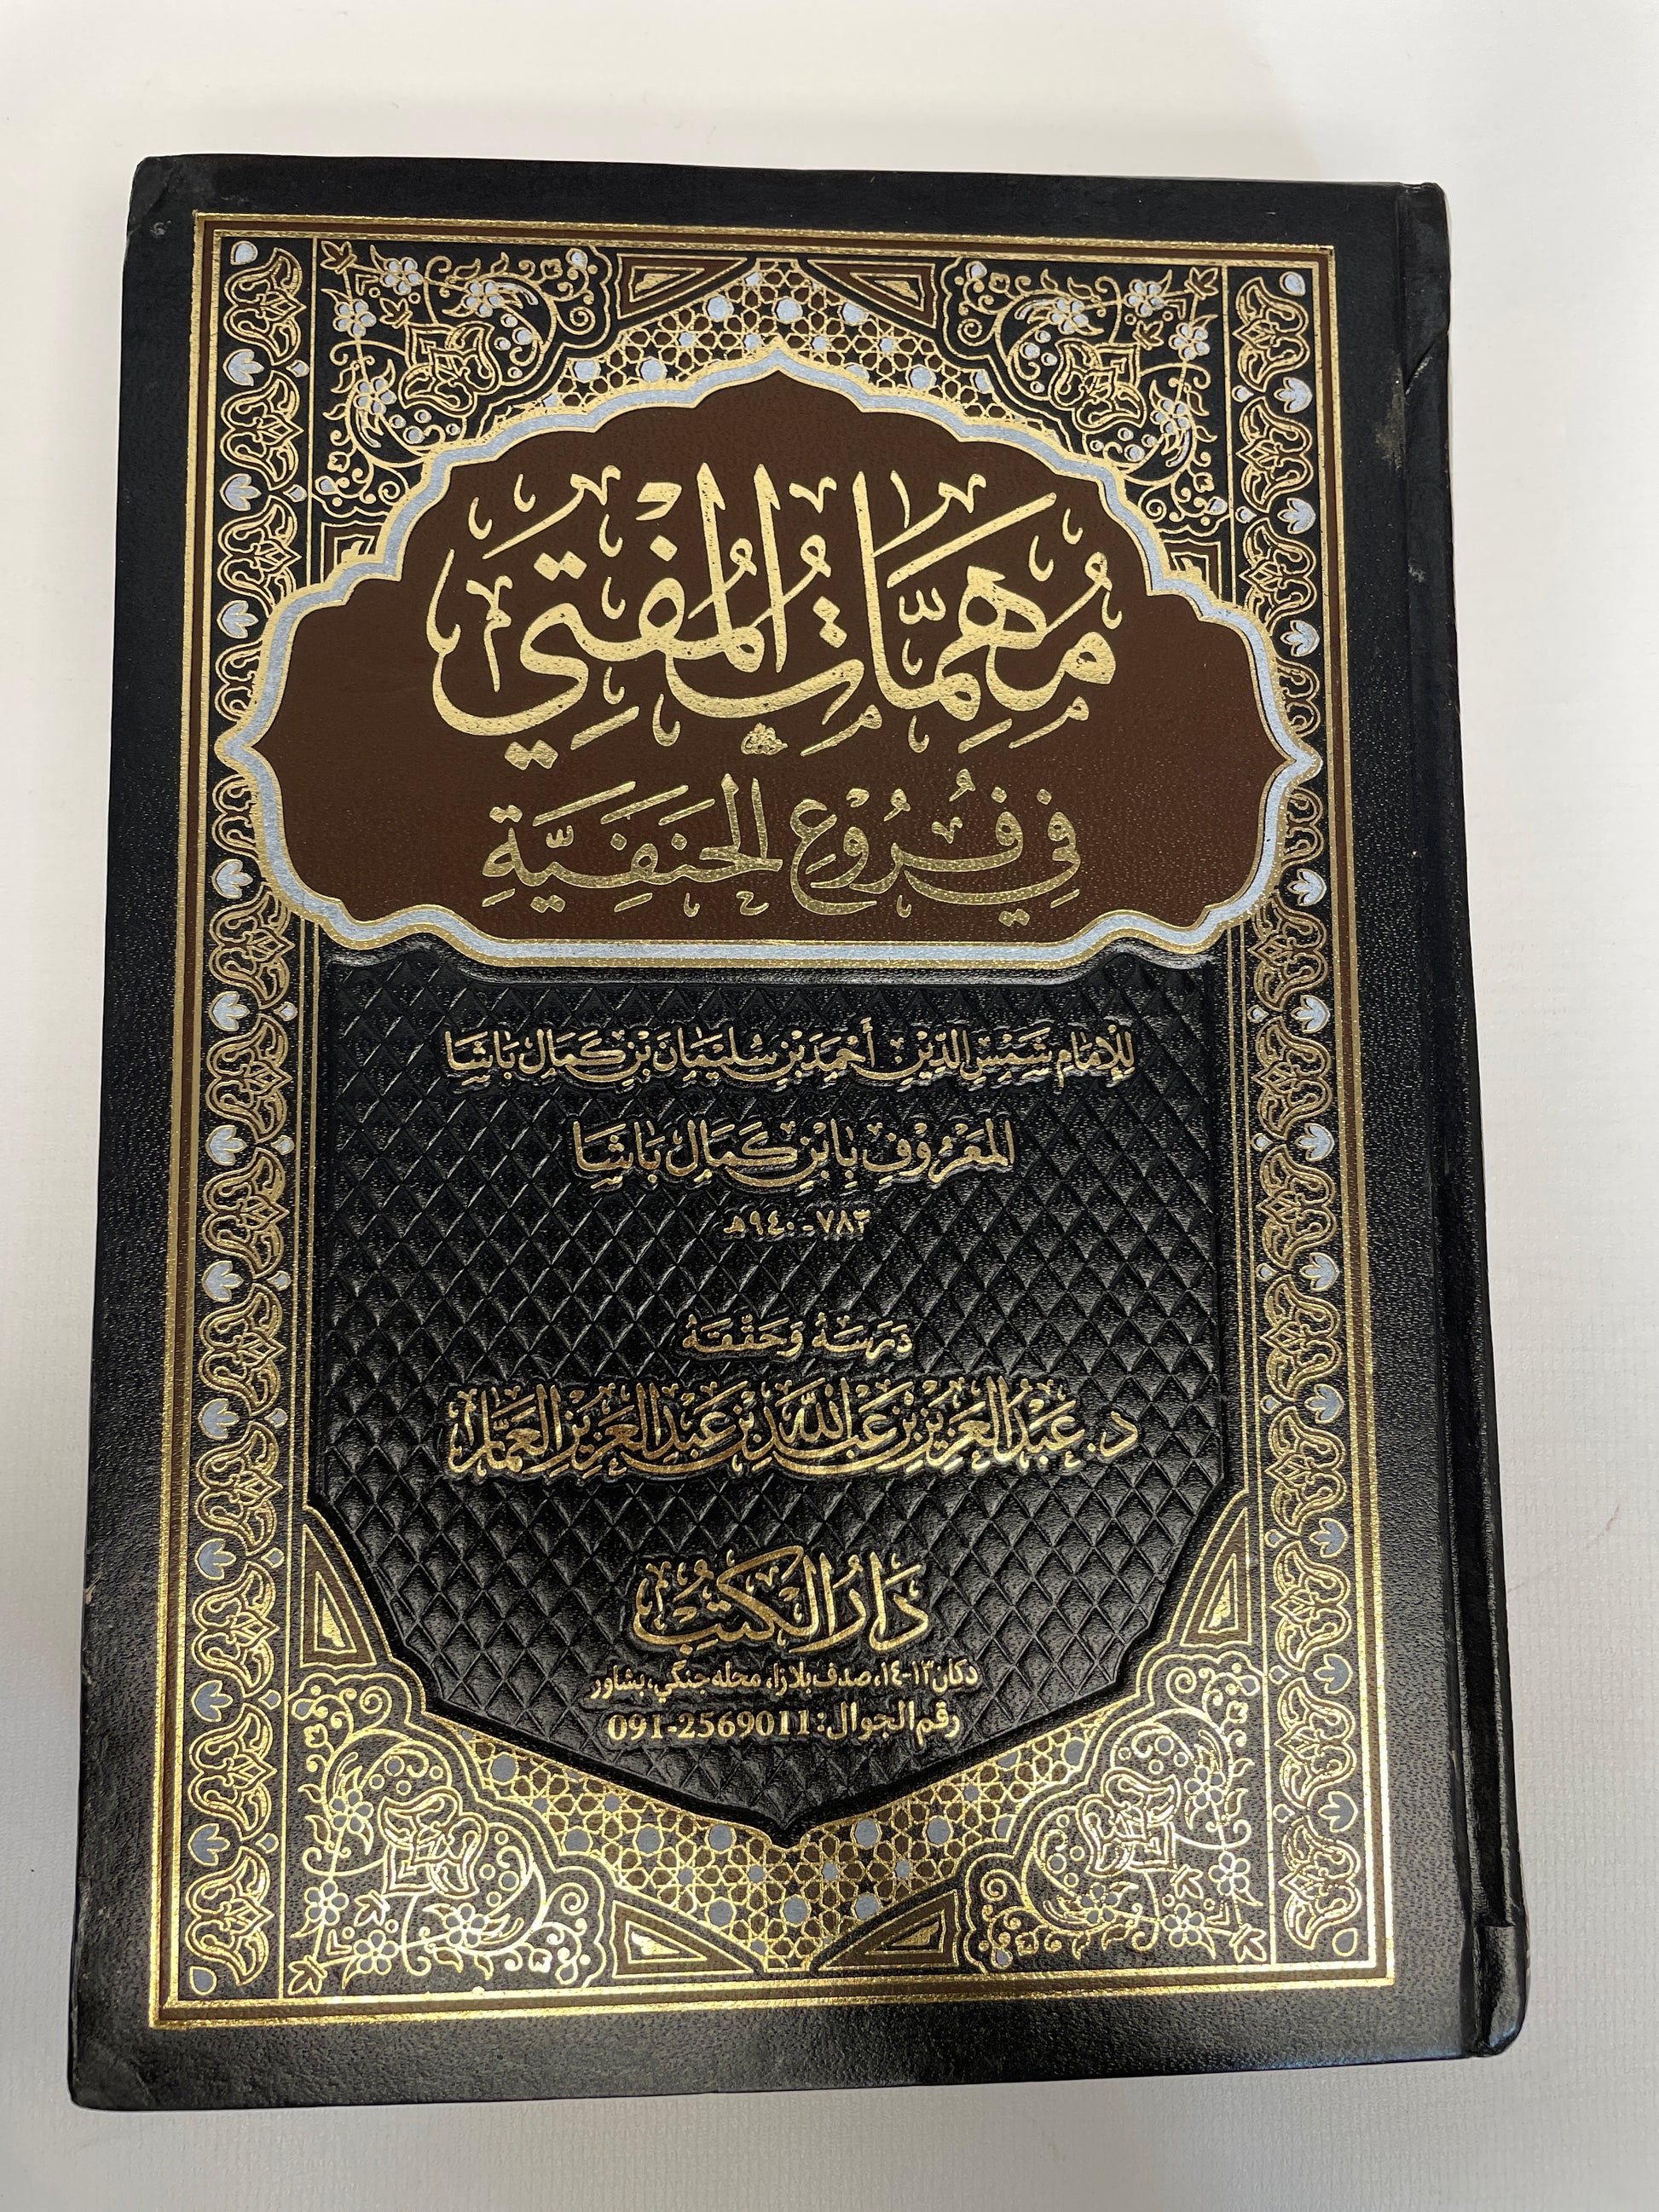 مُهِمَّاتُ الْمُفْتِيْ
فِيْ فُرُوْعِ الْحَنَفِيَّةِ
لِلْإِمَامِ شَمْسِ الدِّيْنِ أَحْمَدَ بْنِ سُلَيْمَانَ بْنِ كَمَالْ بَاشَا
الْمَعْرُوْفِ بِابْنِ كَمَالْ بَاشَا
٧٨٣-٩٤٠هـ
دَرَسَهُ وَحَقَّقَهُ
د. عَبْدُ الْعَزِيْزِ بْنِ عَبْدِ اللّٰهِ بْنِ عَبْدِ الْعَزِيْزِ الْعَمَّار
دَارُ الْكُتُبْ
دكان ١٣-١٤، صدف بلازا، محله جنكي، بشاور
رقم الجوال: 091-2569011